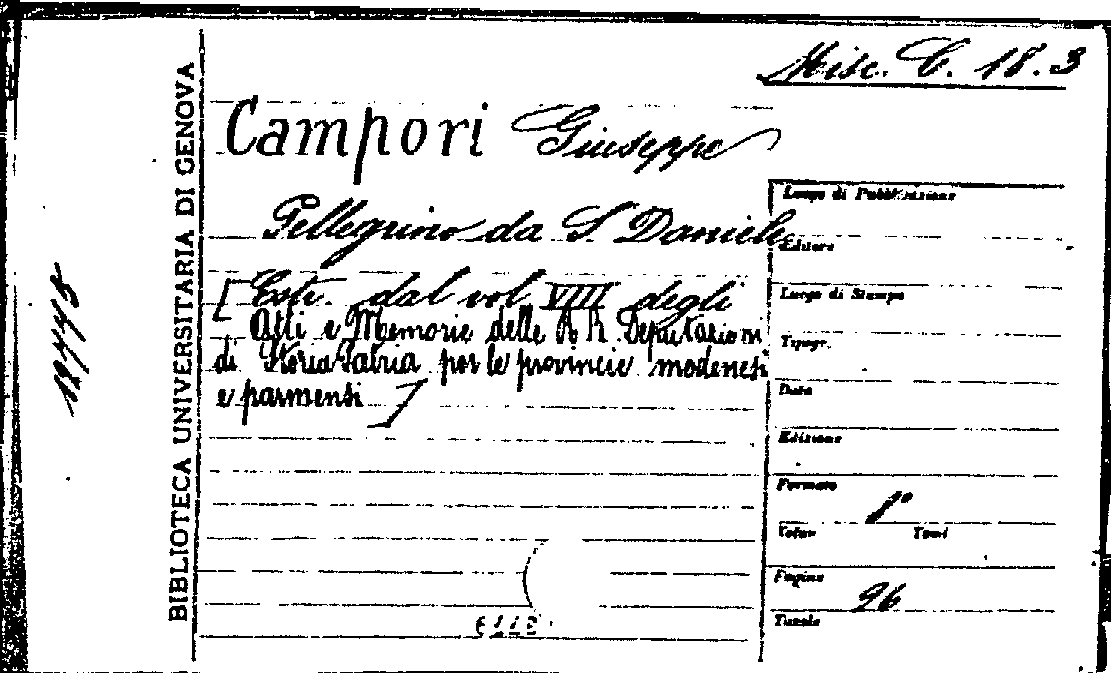 Misc. C. 18. 3
Campori Giuseppe
Pellegrino da S. Daniele
[Estr. dal vol VIII degli
Atti e Memorie delle R R. Deputazioni
di Storia Patria per le provincie modenesi
e parmensi]
BIBLIOTECA UNIVERSITARIA DI GENOVA
Luogo di Pubblicazione
Editore
Luogo di Stampa
Tipogr.
Data
Edizione
Formato
8°
Volum Tomi
Pagine
26
Tavole